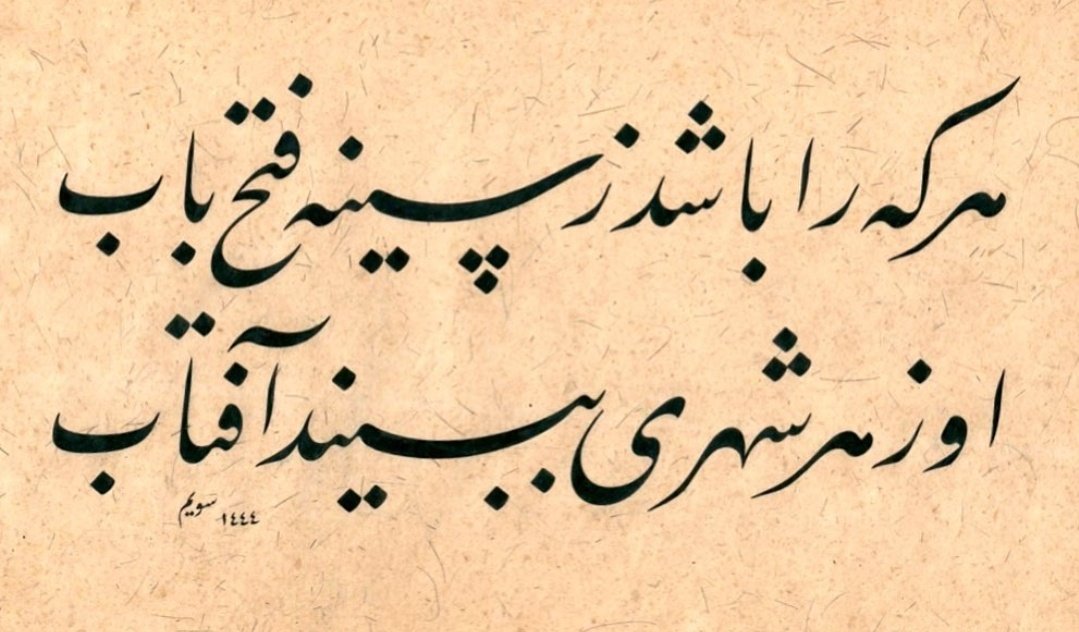 هر که را باشد ز سینه فتح باب
او ز هر شهری ببیند آفتاب
سویم ١٤٤٤